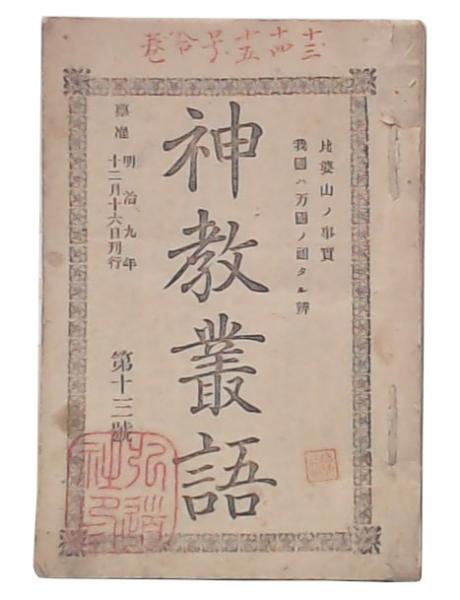 十三十四十五号合巻
比婆山ノ事實
我國ハ万國ノ祖タル辨
神教叢語
稟准 明治九年
十二月十六日刊行
第十三號
弘道社印